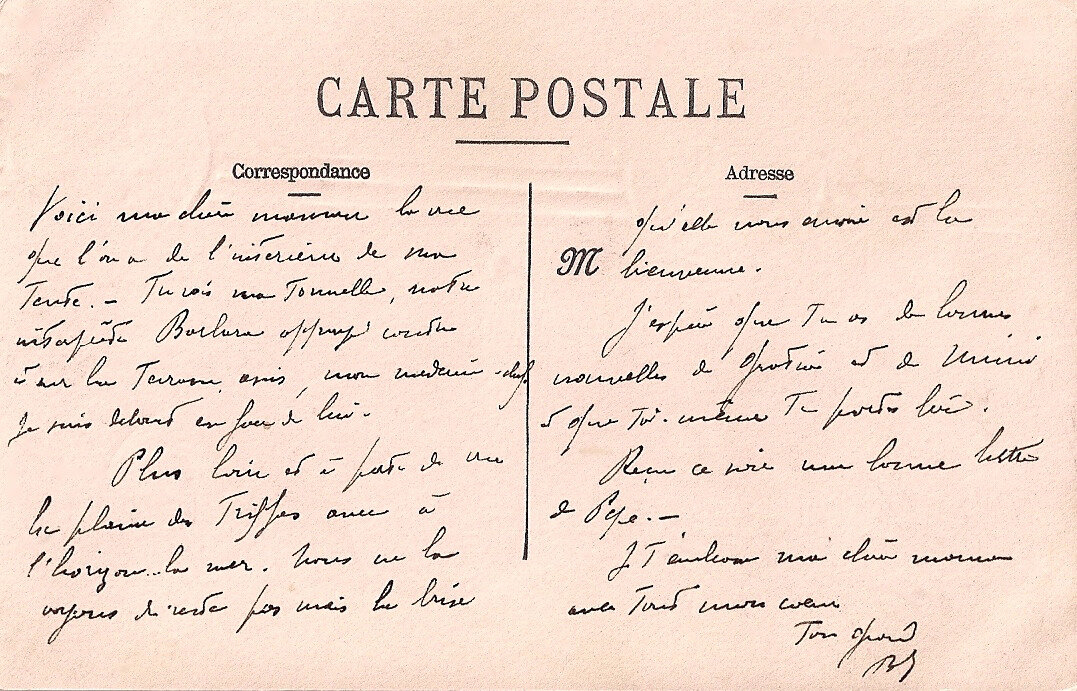 CARTE POSTALE
Correspondance
Voici ma chère maman la vue
que l'on a de l'intérieur de ma
Tente. - Tu vois ma Tonnelle, notre
Barbara appuyé contre
et sur la Terrasse assis, mon médecin-chef
Je suis debout en face de lui.
Plus loin et à perte de vue
la plaine des Triffas avec à
l'horizon..la mer. Nous ne la
voyons du reste pas mais la brise
Adresse
qu'elle nous envoie est la
M
bienvenue.
J'espère que Tu as de bonnes
nouvelles de et de Mimi
et que Toi-même Tu portes bien.
Reçu ce soir une bonne lettre
de Pepe. -
J T'embrasse ma chère maman
avec Tout mon coeur
Ton grand